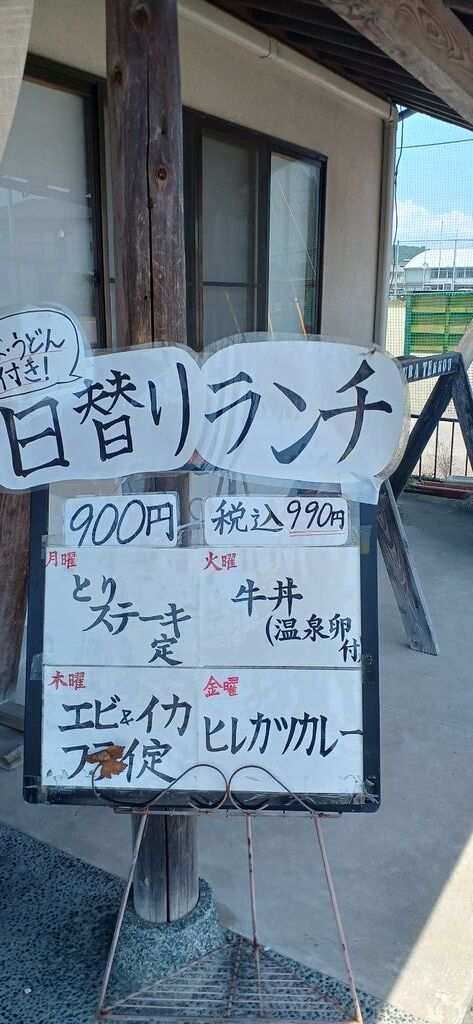 ・うどん
付き!
日替り ランチ
900円
税込 990円
月曜
とり
ステーキ
定
火曜
牛丼
(温泉卵
付
木曜
エビ&イカ
フライ定
金曜
ヒレカツカレー